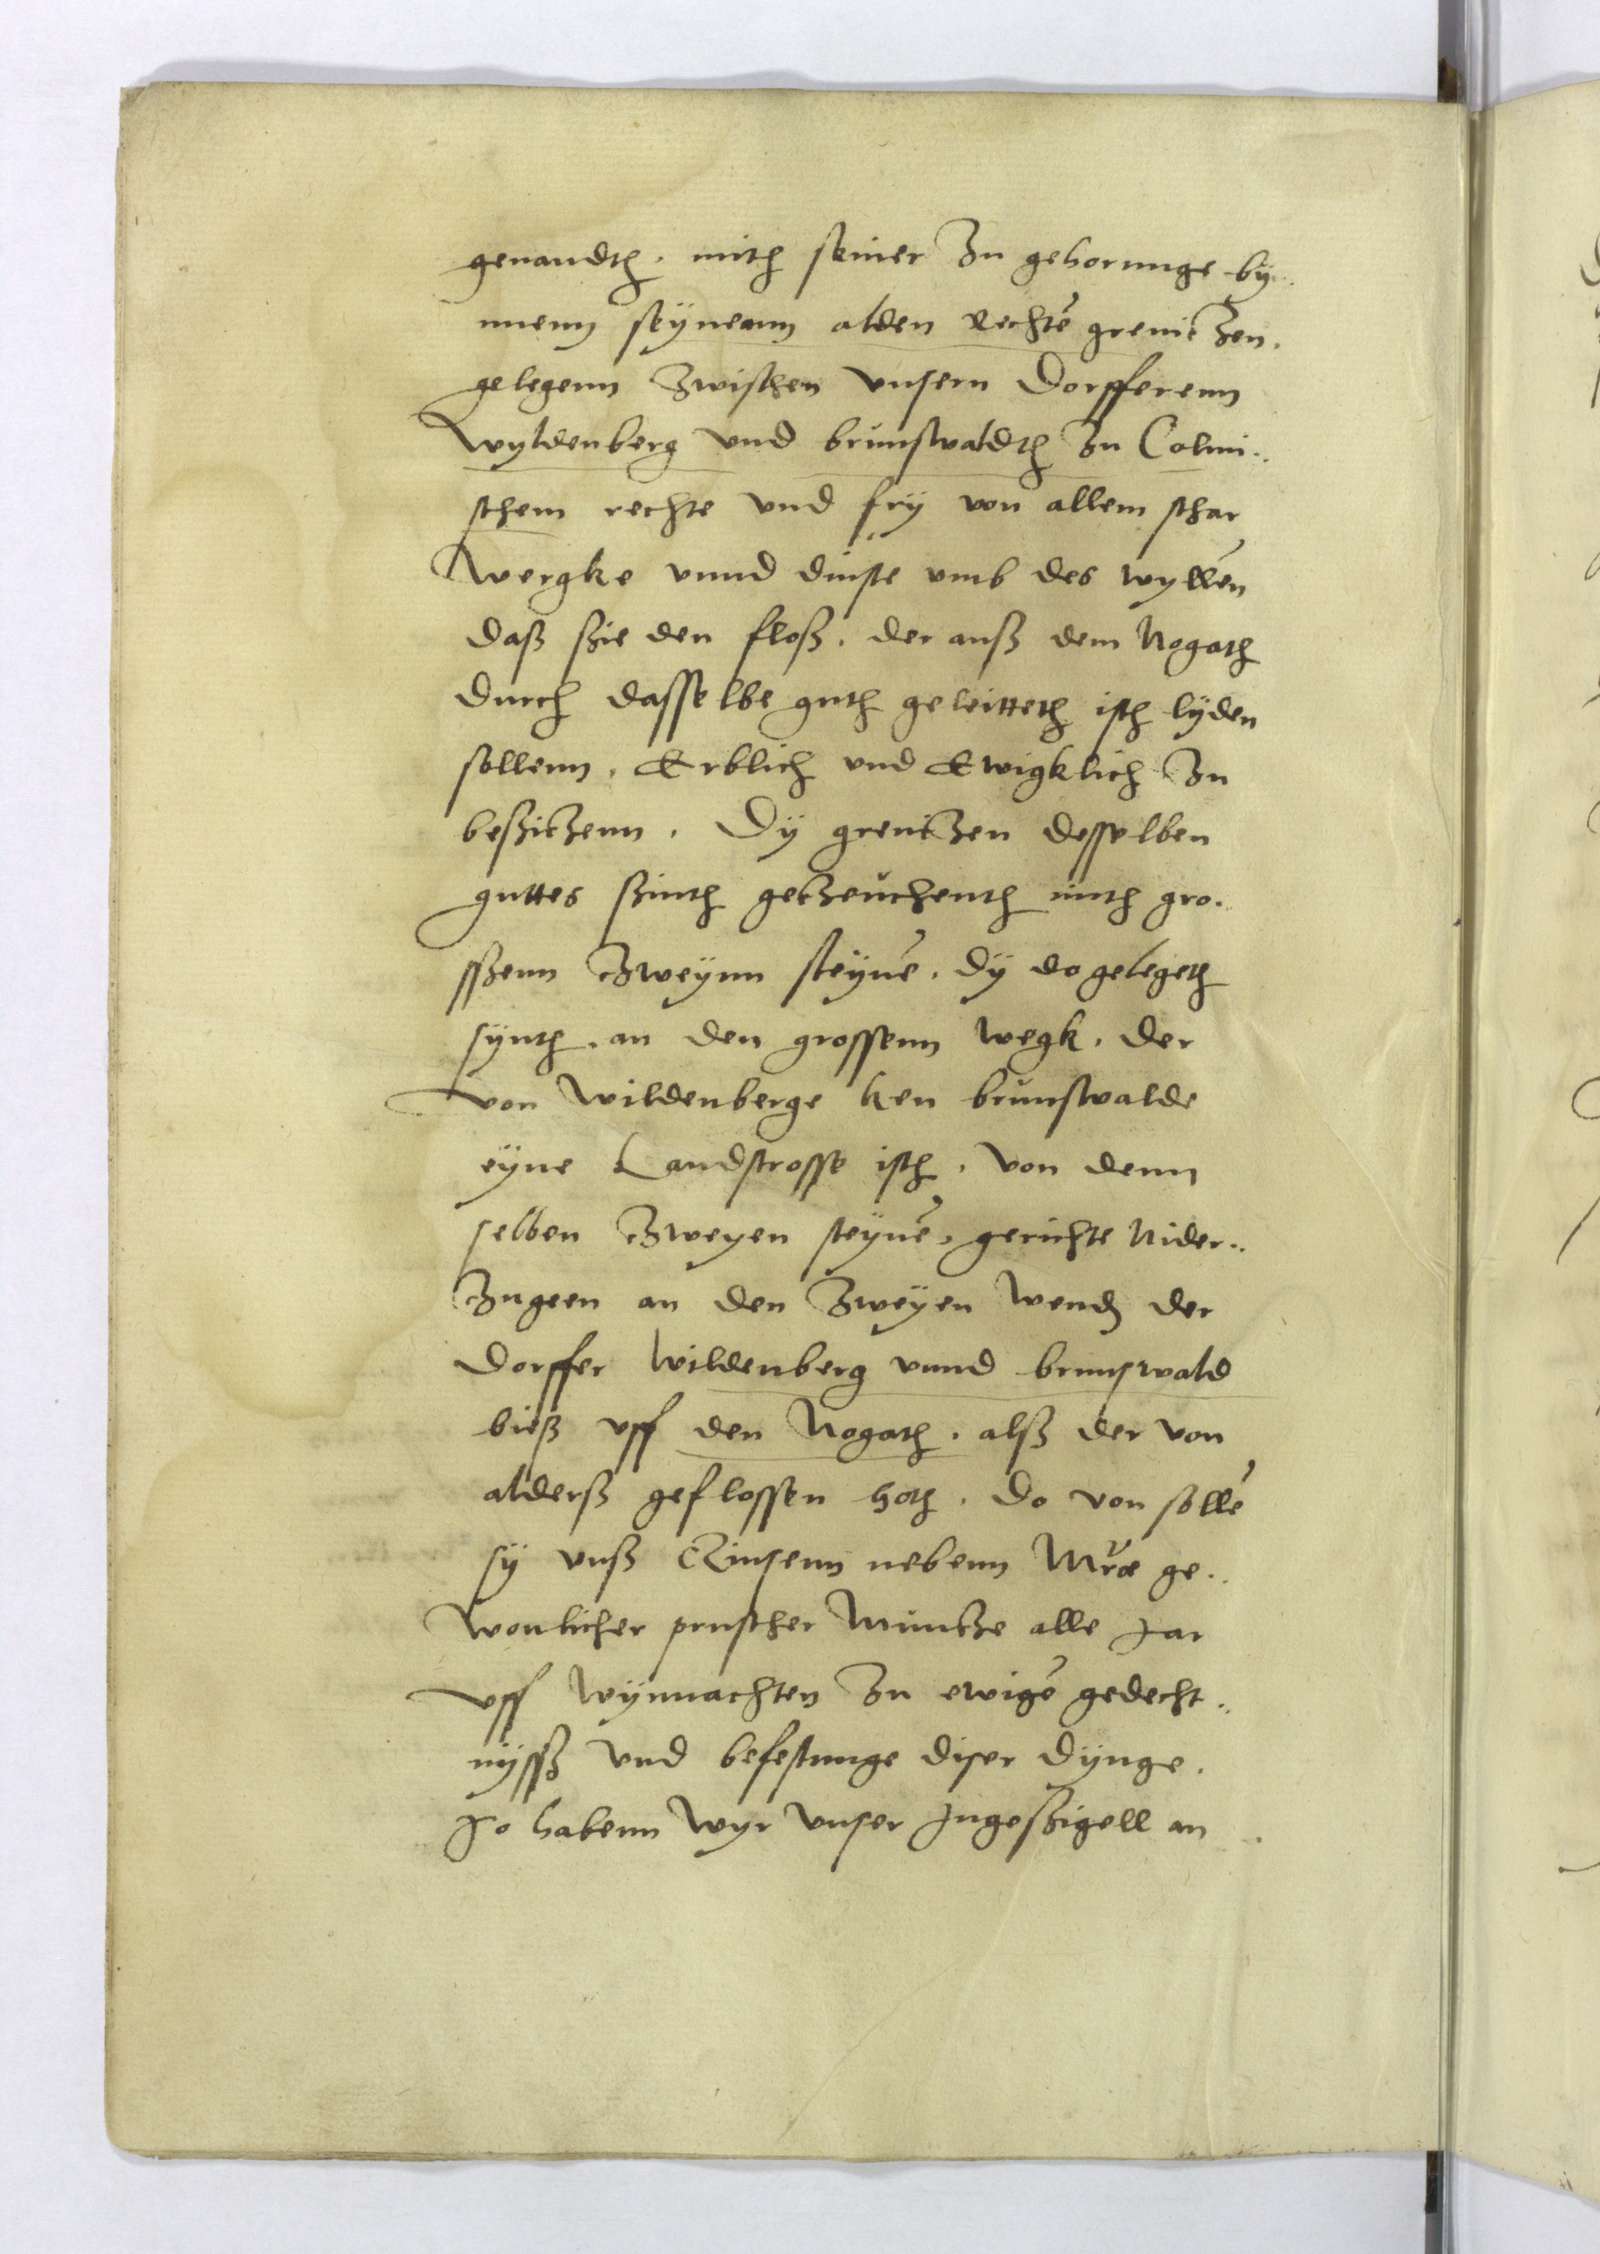 genandth . mith seiner zu gehorunge by..
nnenn seyneann alden Rechtē grenitzen .
gelegenn zwischen vnsern Dorfferenn
Wyldenberg vnd brunswaldth zu Colmi..
schem rechte vnd fry von allem schar
Wergke vnnd dinste vmb des wyllēn
daß ßie den floß . der auß dem Nogath
durch dasselbe guth geleitteth isth lyden
sollenn . Erblich vnd Ewigklich zu
beßitzenn . Dy grentzen desselben
guttes ßinth getzeuchenth mith gro.
sßenn zweynn steynē . dy do gelegeth
synth . an den grossenn wegk . der
von Wildenberge ken brunswalde
eyne Landstrosse isth . von denn
selben zweyen steynē . gerichte Nider..
zugeen an den zweyen wend der
Dorffer Wildenberg vnnd brunswald
bieß vff den Nogath . alß der von
alderß geflossen hoth . do von sollē
sy vnß Czinsenn nebenn Mrͦ ge..
wonlicher pruscher Muntze alle Jar
vff wynnachten zu ewigē gedecht..
nysß vnd befestunge diser dynge .
So habenn wyr vnser Jngeßigell an